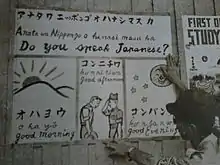 アナタワ ニッポンゴ オ ハナシマス カ
Anata wa Nippongo o hanasi masu ka
Do you speak Japanese?
FIRST
STUDY
オハヨウ
o ha yō
good Morning
コンニチワ
kon niti wa
Good afternoon
コンバンワ
good Evening